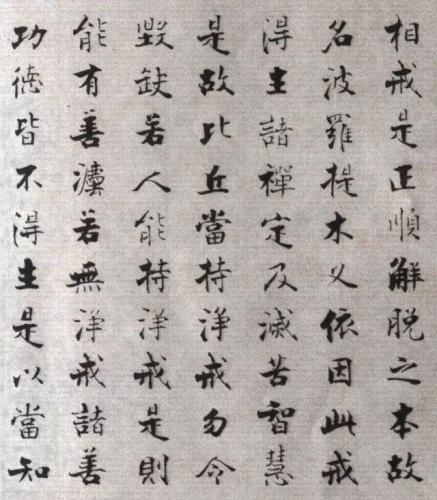 相戒是正順解脱之本故
名波羅提木叉依因此戒
得生諸禪定及滅苦智慧
是故比丘當持淨戒勿令
毀缺若人能持淨戒是則
能有善灋若無淨戒諸善
功德皆不得生是以當知